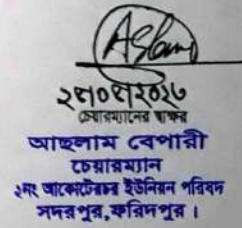 চেয়ারম্যানের স্বাক্ষর
আছলাম বেপারী
চেয়ারম্যান
২নং আকোটেরচর ইউনিয়ন পরিষদ
সদরপুর,ফরিদপুর।